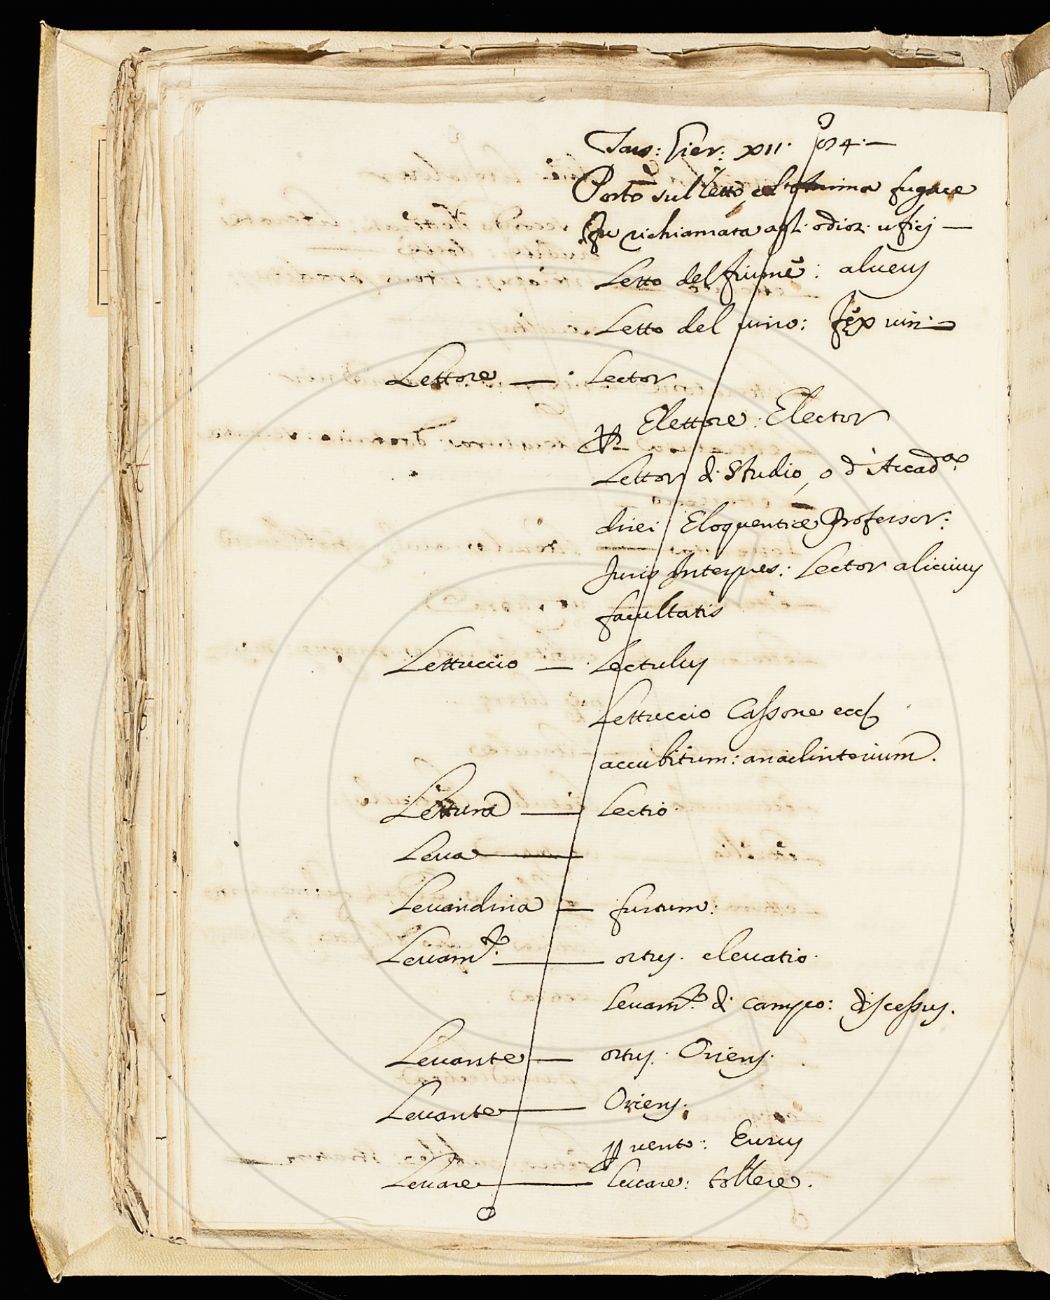 Tass: Gier: XII. 94. —
Portò sul letto, e l'anima fugace
Fu richiamata agl. odior. uficj —
Letto del fiume: alveus
Letto del vino: fex vin: —
Lettore — Lector
Elettore: Elector
Lettor di Studio, o d'Accad.a
dicei Eloquentiæ Professor:
Juris Interpres: Lector alicuius
facultatis
Lettuccio — Lectulus
Lettuccio Cassone ecc
accubitum: anaclinterium.
Lettura — Lectio.
Leva —
Levandina — furtum:
Levam.to — ortus. elevatio.
Levam.to di campo: discessus.
Levante — ortus. Oriens.
Levante — Oriens.
p vento: Eurus
Levare — Levare: tollere.